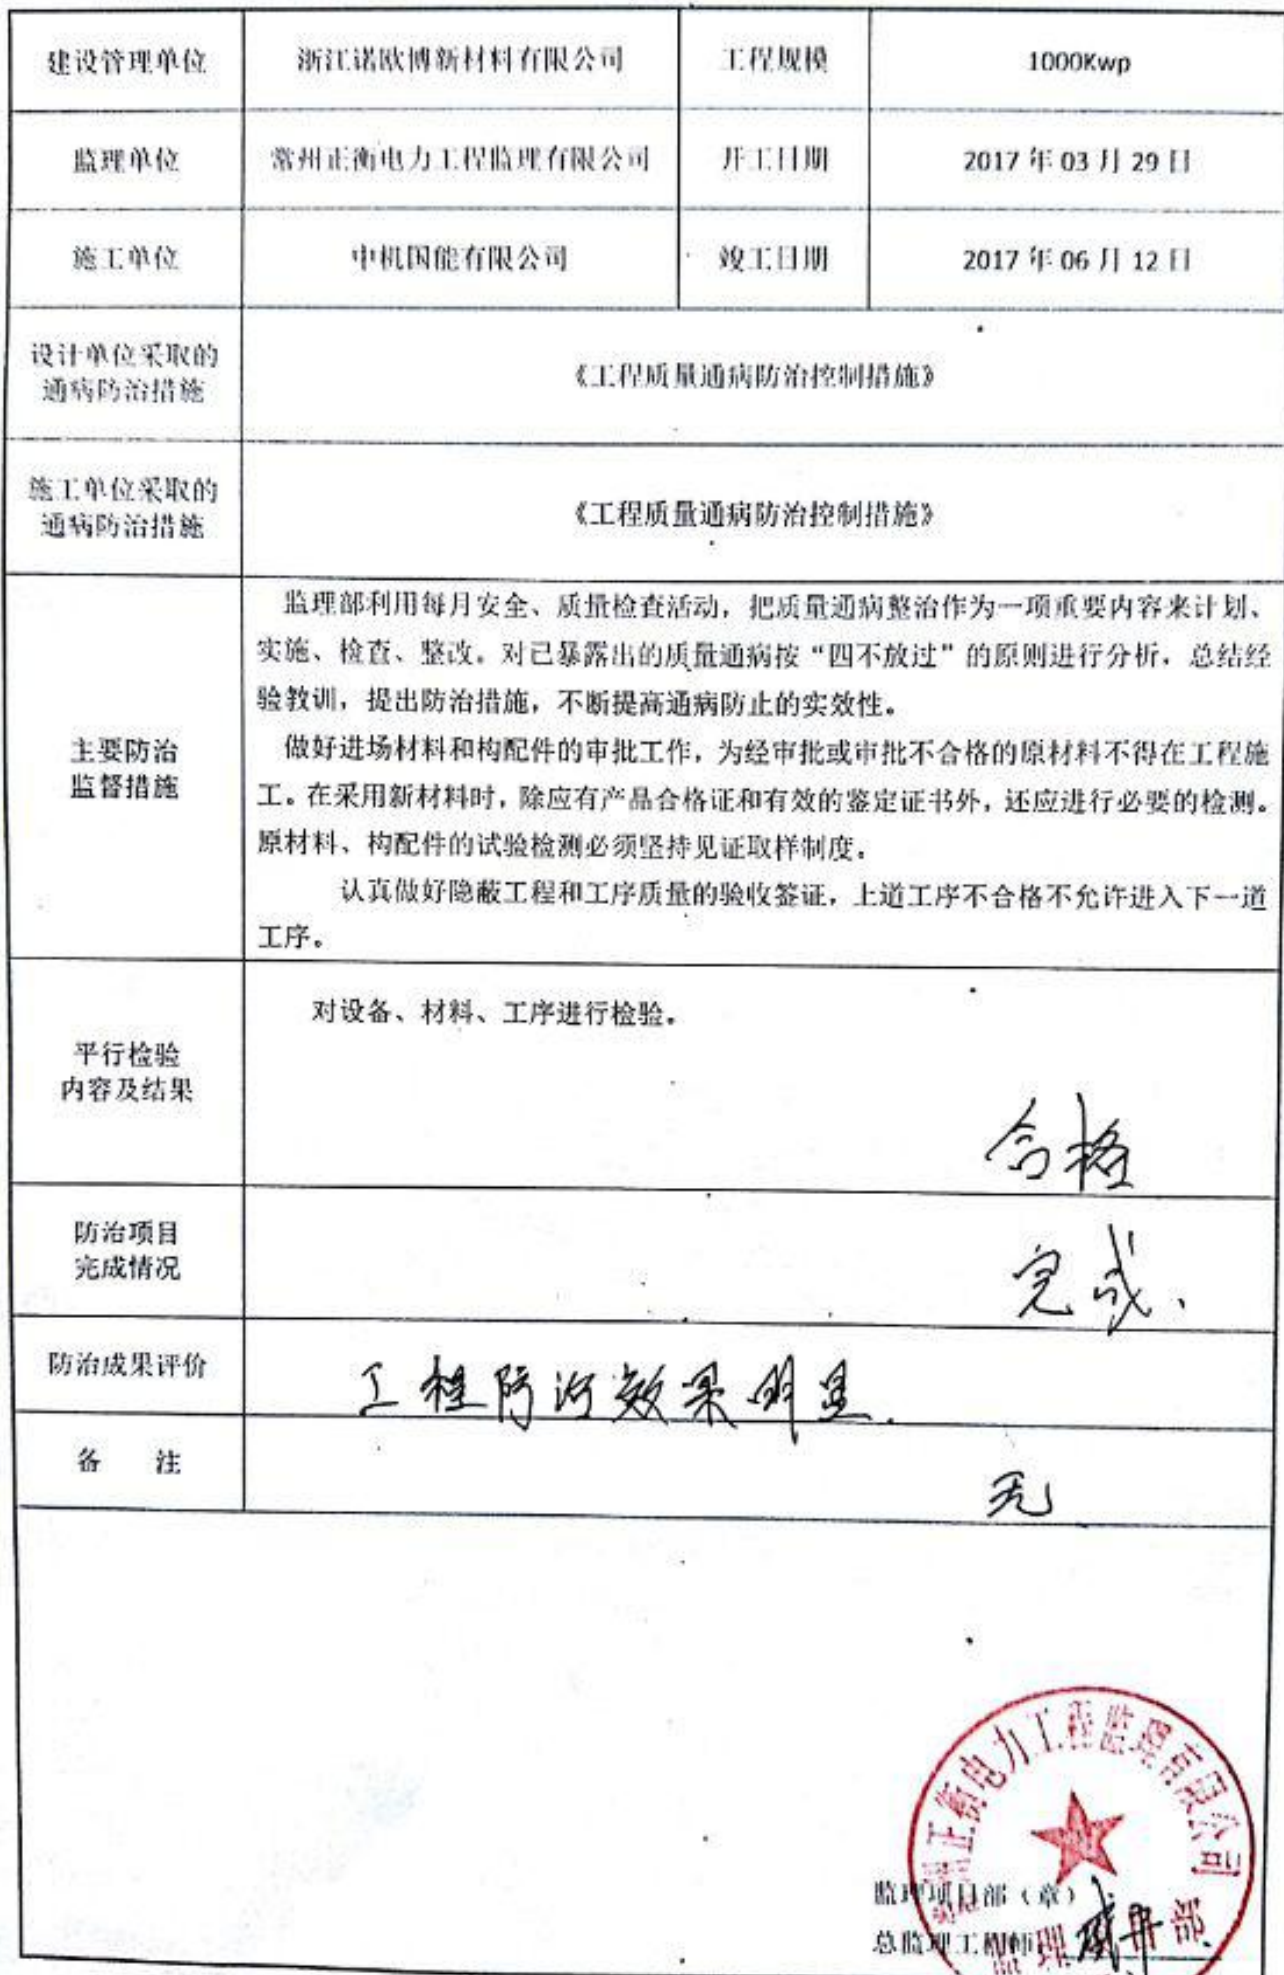 建设管理单位 浙江诺欧博新材料有限公司 工程规模 1000Kwp
监理单位 常州正衡电力工程监理有限公司 开工日期 2017年03月29日
施工单位 中机国能有限公司 竣工日期 2017年06月12日
设计单位采取的
通病防治措施
《工程质量通病防治控制措施》
施工单位采取的
通病防治措施
《工程质量通病防治控制措施》
主要防治
监督措施
监理部利用每月安全、质量检查活动，把质量通病整治作为一项重要内容来计划、
实施、检查、整改。对已暴露出的质量通病按“四不放过”的原则进行分析，总结经
验教训，提出防治措施，不断提高通病防止的实效性。
做好进场材料和构配件的审批工作，为经审批或审批不合格的原材料不得在工程施
工。在采用新材料时，除应有产品合格证和有效的鉴定证书外，还应进行必要的检测。
原材料、构配件的试验检测必须坚持见证取样制度。
认真做好隐蔽工程和工序质量的验收签证，上道工序不合格不允许进入下一道
工序。
平行检验
内容及结果
对设备、材料、工序进行检验。
合格
防治项目
完成情况
完成.
防治成果评价 工程防治效果明显.
备 注 无
常州正衡电力工程监理有限公司
监理项目部（章）
总监理工程师